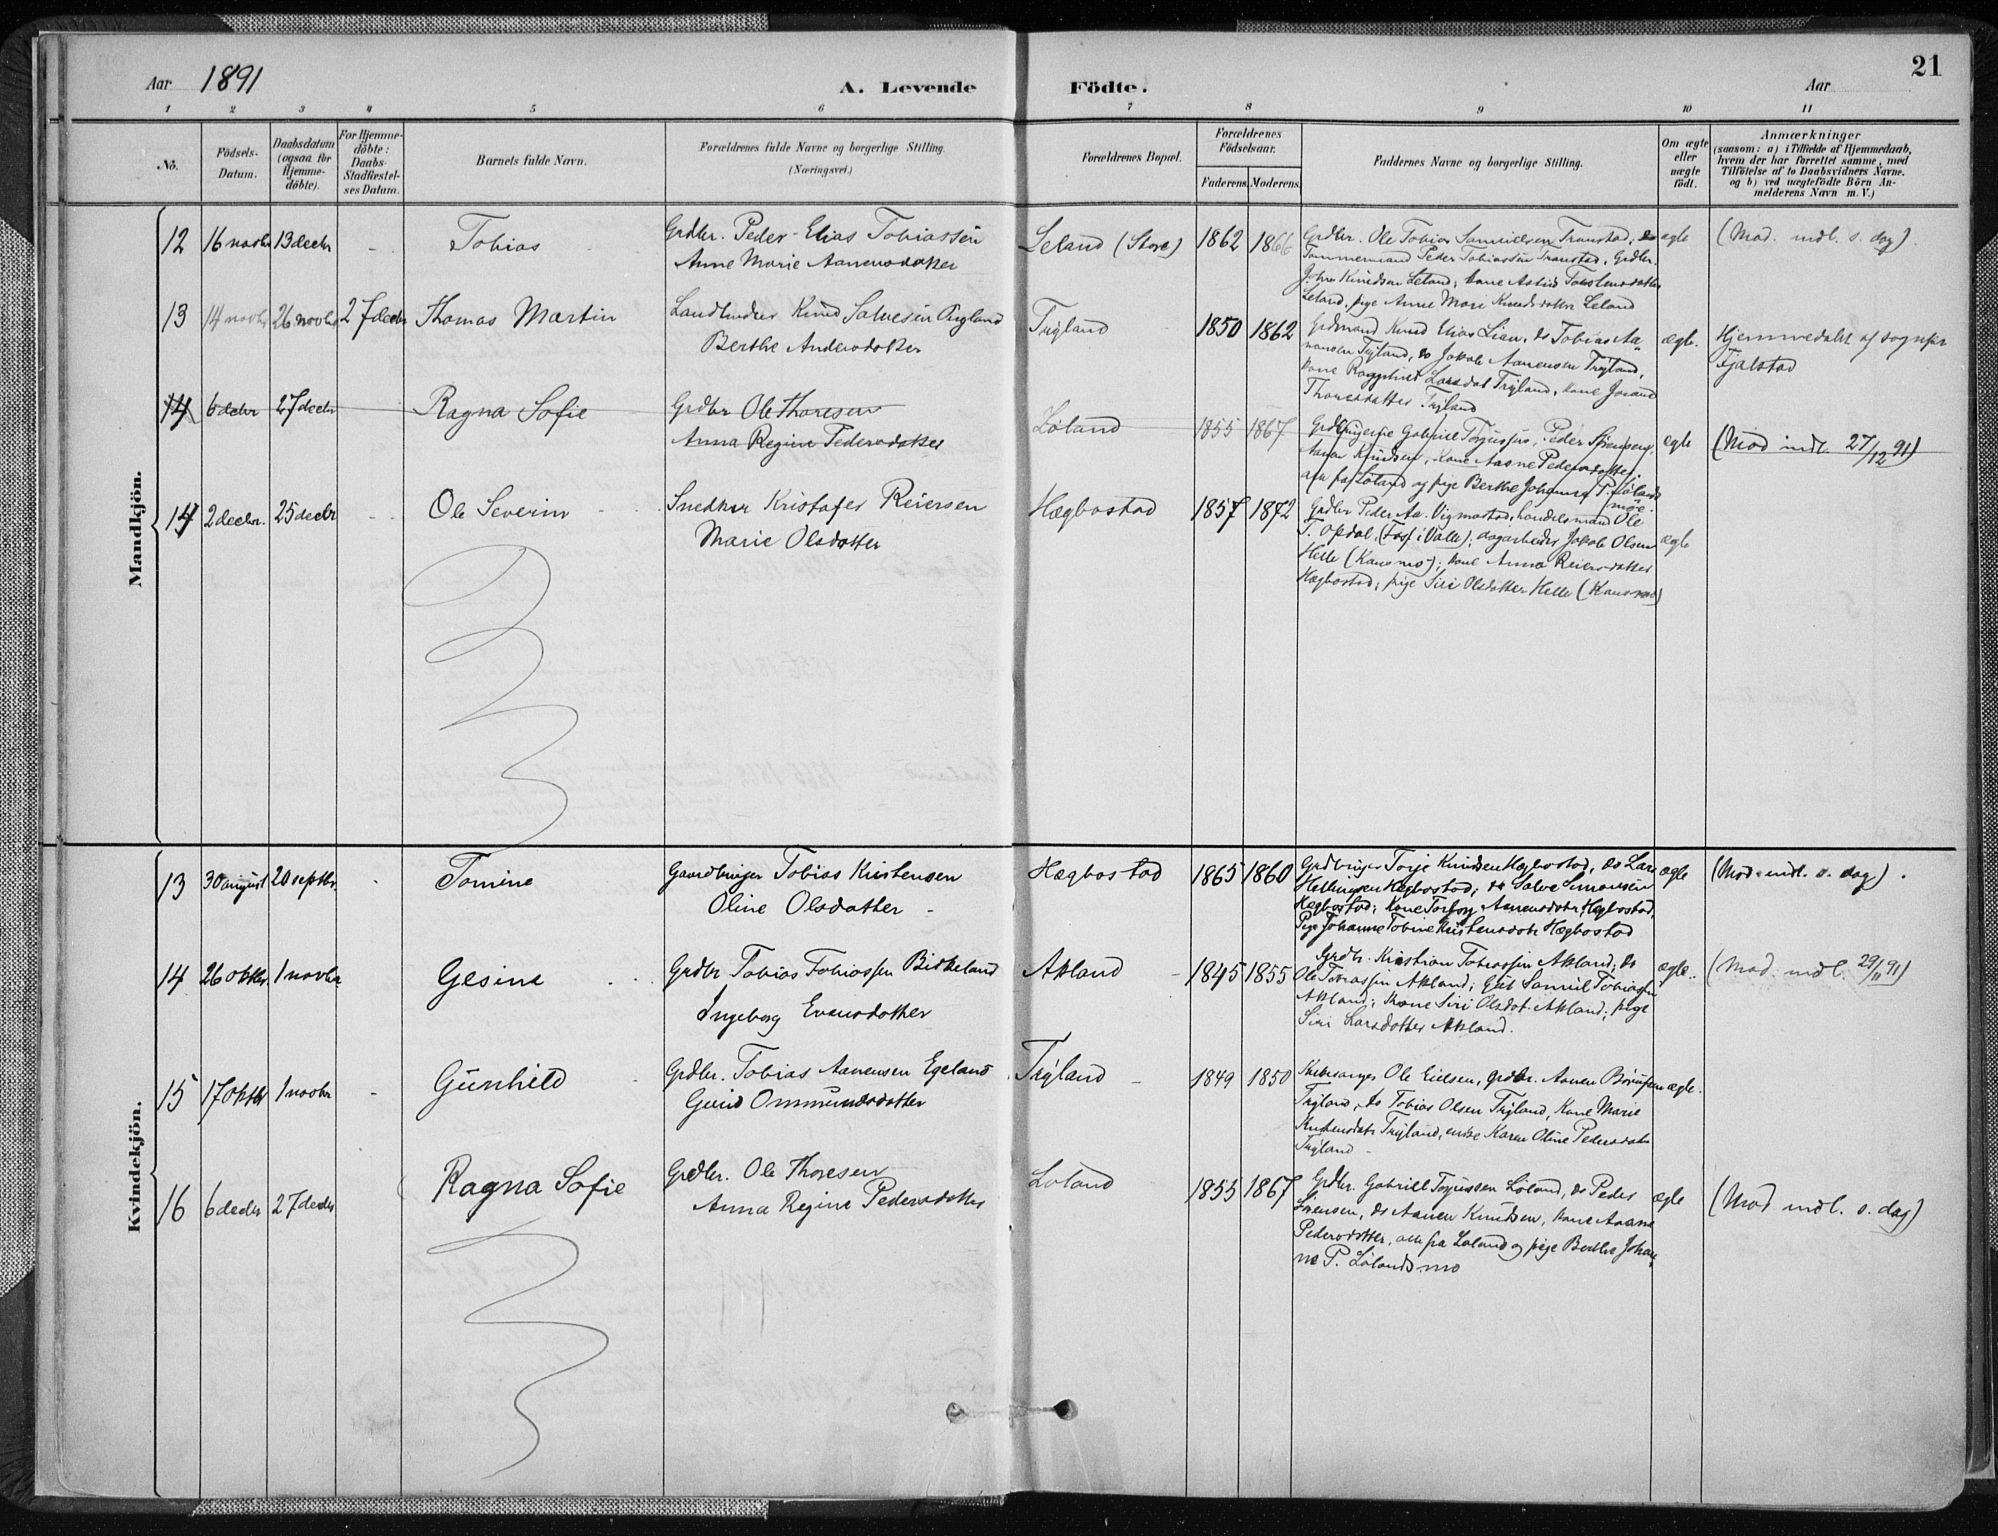 21
Aar 1891
A. Levende Födte.
Aar
1 2 3 4 5 6 7 8 9 10 11
Nô.
Födsels-Datum.
Daabsdatum (ogsaa for Hjemme-döbte).
For Hjemme-döbte: Daabs-Stadfæstel-ses Datum.
Barnets fulde Navn.
Forældrenes fulde Navne og borgerlige Stilling.
(Næringsvei.)
Forældrenes Bopæl.
Forældrenes Födselsaar.
Faderens. Moderens.
Faddernes Navne og borgerlige Stilling.
Om ægte eller uægte födt.
Anmærkninger
(saasom: a) i Tilfælde af Hjemmedaab, hvem der har forrettet samme, med Tilföielse af to Daabsvidners Navne, og b) ved uægtefödte Börn An-melderens Navn m. V.)
Mandkjön.
12 16 novbr 13 decbr - Tobias
Grdbr. Peder Elias Tobiassen
Anne Marie Aanensdatter
Leland (Store) 1862 1866
Grdbr. Ole Tobias Samuelsen Transtad; do
Tømmermand Peder Tobiassen Transtad, Grdbr.
John Knudsen Leland; kone Astrid Torkelsdatter
Leland, pige Anne Mari Knudsdatter Leland
ægte (Mod. indl. s. dag).
13 14 novbr 26 novbr 27 decbr Thomas Martin
Knud Salvesen
Berthe Andersdatter
Trÿland 1850 1862
Grdmand Knud Elias Lian, do Tobias Aa-
nensen Trÿland, do Jakob Aanensen Trÿland,
kone Ragnhild Larsdat Trÿland, kone Jorand
Thoresdatter Trÿland
ægte. Hjemmedøbt af sognepr
Fjalstad
14 6 decbr 27 decbr Ragna Sofie
Grdbr Ole Thoresen
Anna Regine Pedersdatter
Løland 1855 1867
Gabriel Torjussen, Peder Sørensen,
Aanen Knudsen, kone Aasne Pedersdatter,
alle fra Løland og pige Berthe Johanna P. Lølands
moe.
ægte (Mod indl. 27/12 91)
14 2 decbr. 25 decbr - Ole Severin
Snedker Kristofer Reiersen
Marie Olsdatter
Hægbostad 1857 1872
Grdbr Peder Aa. Vigmostad, handelsmand Ole
T. Opdal, (Foss i Valle); dagarbeider Jakob Olsen
Helle (Hausmo); kone Anna Reiersdatter
Hægbostad; pige Siri Olsdatter Helle
ægte
Kvindekjön.
13 30 august 20 septbr. - Tomine
Gaardbruger Tobias Kristensen
Oline Olsdatter -
Hægbostad 1865 1860
Grdbruger Torje Knudsen Hægbostad, do Lars
Hægbostad; do Salve Simonsen
Hægbostad; Kone Torborg Aanensdatr Hægbostad,
Pige Johanne Tobine Kristensdatr Hægbostad
ægte (Mod. indl. s. dag).
14 26 oktbr. 1 novbr Gesine
Grdbr. Tobias Tobiassen Birkeland
Ingeborg Evensdatter
Akland - 1845 1855
Grdbr. Kristian Tobiassen Akland; do
Ole Tobiassen Akland; Gut Samuel Tobiassen
Akland; Kone Siri Olsdot. Akland; pige
Siri Larsdotter Akland.
ægte. (Mod. indl. 29/11 91)
15 17 oktbr 1 novbr - Gunhild
Grdbr. Tobias Aanensen Egeland
Gurid Ommundsdatter
Trÿland - 1849 1850
Ole Eielsen, grdbr. Aanen
Trÿland, do Tobias Olsen Trÿland, Kone Marie
Trÿland, enke Karen Oline Pedersdatr
Trÿland
ægte.
16 6 decbr 27 decbr Ragna Sofie
Grdbr. Ole Thoresen
Anna Regine Pedersdatter
Løland 1855 1867
Grdbr. Gabriel Torjussen Løland, do Peder
Sørensen, do Aanen Knudsen, kone Aasne
Pedersdatter, alle fra Løland og pige Berthe Johan-
ne P. Lølandsmo
ægte (Mod indl. s. dag)